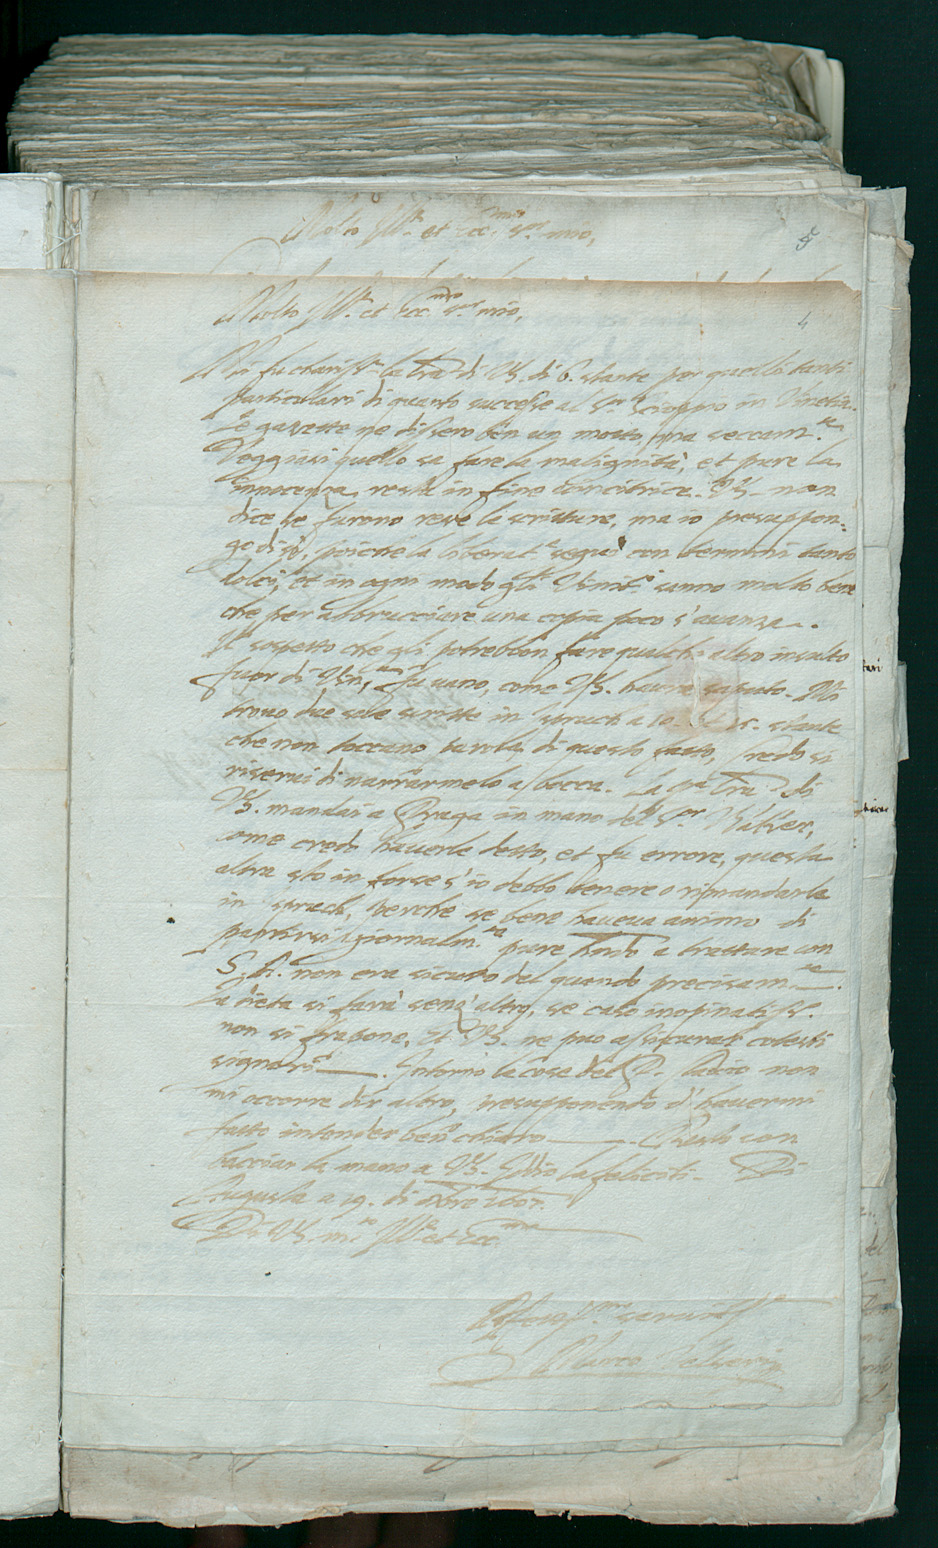 Molto Ill.re et Ecc.mo S.or mio,
5
Molto Ill.re et Ecc.mo S.or mio,
4
Mi fu chariss.a la l'ra di VS. di 6. stante per quelli tanti
particulari di quanto successe al S.r Scioppio in Venetia.
Le gazette ne dissero ben un motto, ma seccam.te
Veggiasi quello sa fare la malignità, et pure la
innocenza resta in fine vincitrice. VS. non
dice se furono rese le scritture, ma io presuppon-
go di sì, poiche la liberat.e seguì con termini tanto
dolci, et in ogni modo gli Venit.i sanno molto bene
che per abbrucciare una copia poco s'avanza.
Il sospetto che gli potrebbon fare qualche altro insulto
fuor di Ven.a fu vano, come VS. haverà saputo. Mi
trovo due sole scritte in Spruch a 10. et 15. stante
che non toccano parola di questo fatto, credo si
riservi di narrarmelo a bocca. La p.a l'ra di
VS. mandai a Praga in mano del S.r
come credo haverle detto, et fu errore, questa
altra sto in forse s'io debbo tenere o rimandarla
in Spruch, perche se bene haveva animo di
partirsi giornalm.te pure havendo a trattare con
S. A. non era sicuro del quando precisam.te
La dieta si farà senz'altro, se caso inopinatiss.o
non si frapone, et VS. ne puo assicurare cotesti
signori. Intorno la cose del P. non
mi occorre dir altro, presupponendo d'havermi
fatto intender ben chiaro. Resto con
basciar la mano a VS. Iddio la feliciti. Di
Augusta a 19. di 1607.
Di VS. m.to Ill.re et Ecc.ma
Affett.mo servit.re
Marco Velseri